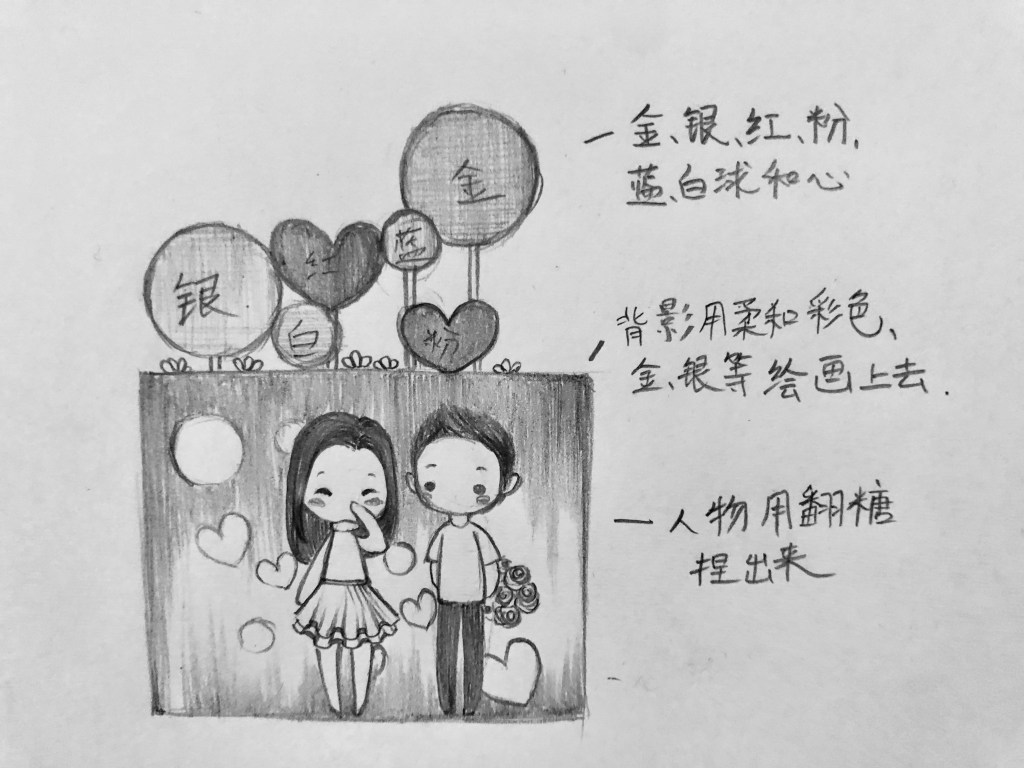 金
银
红
蓝
白
粉
一金、银、红、粉、
蓝、白球和心
背影用柔和彩色、
金、银等绘画上去.
一人物用翻糖
捏出来